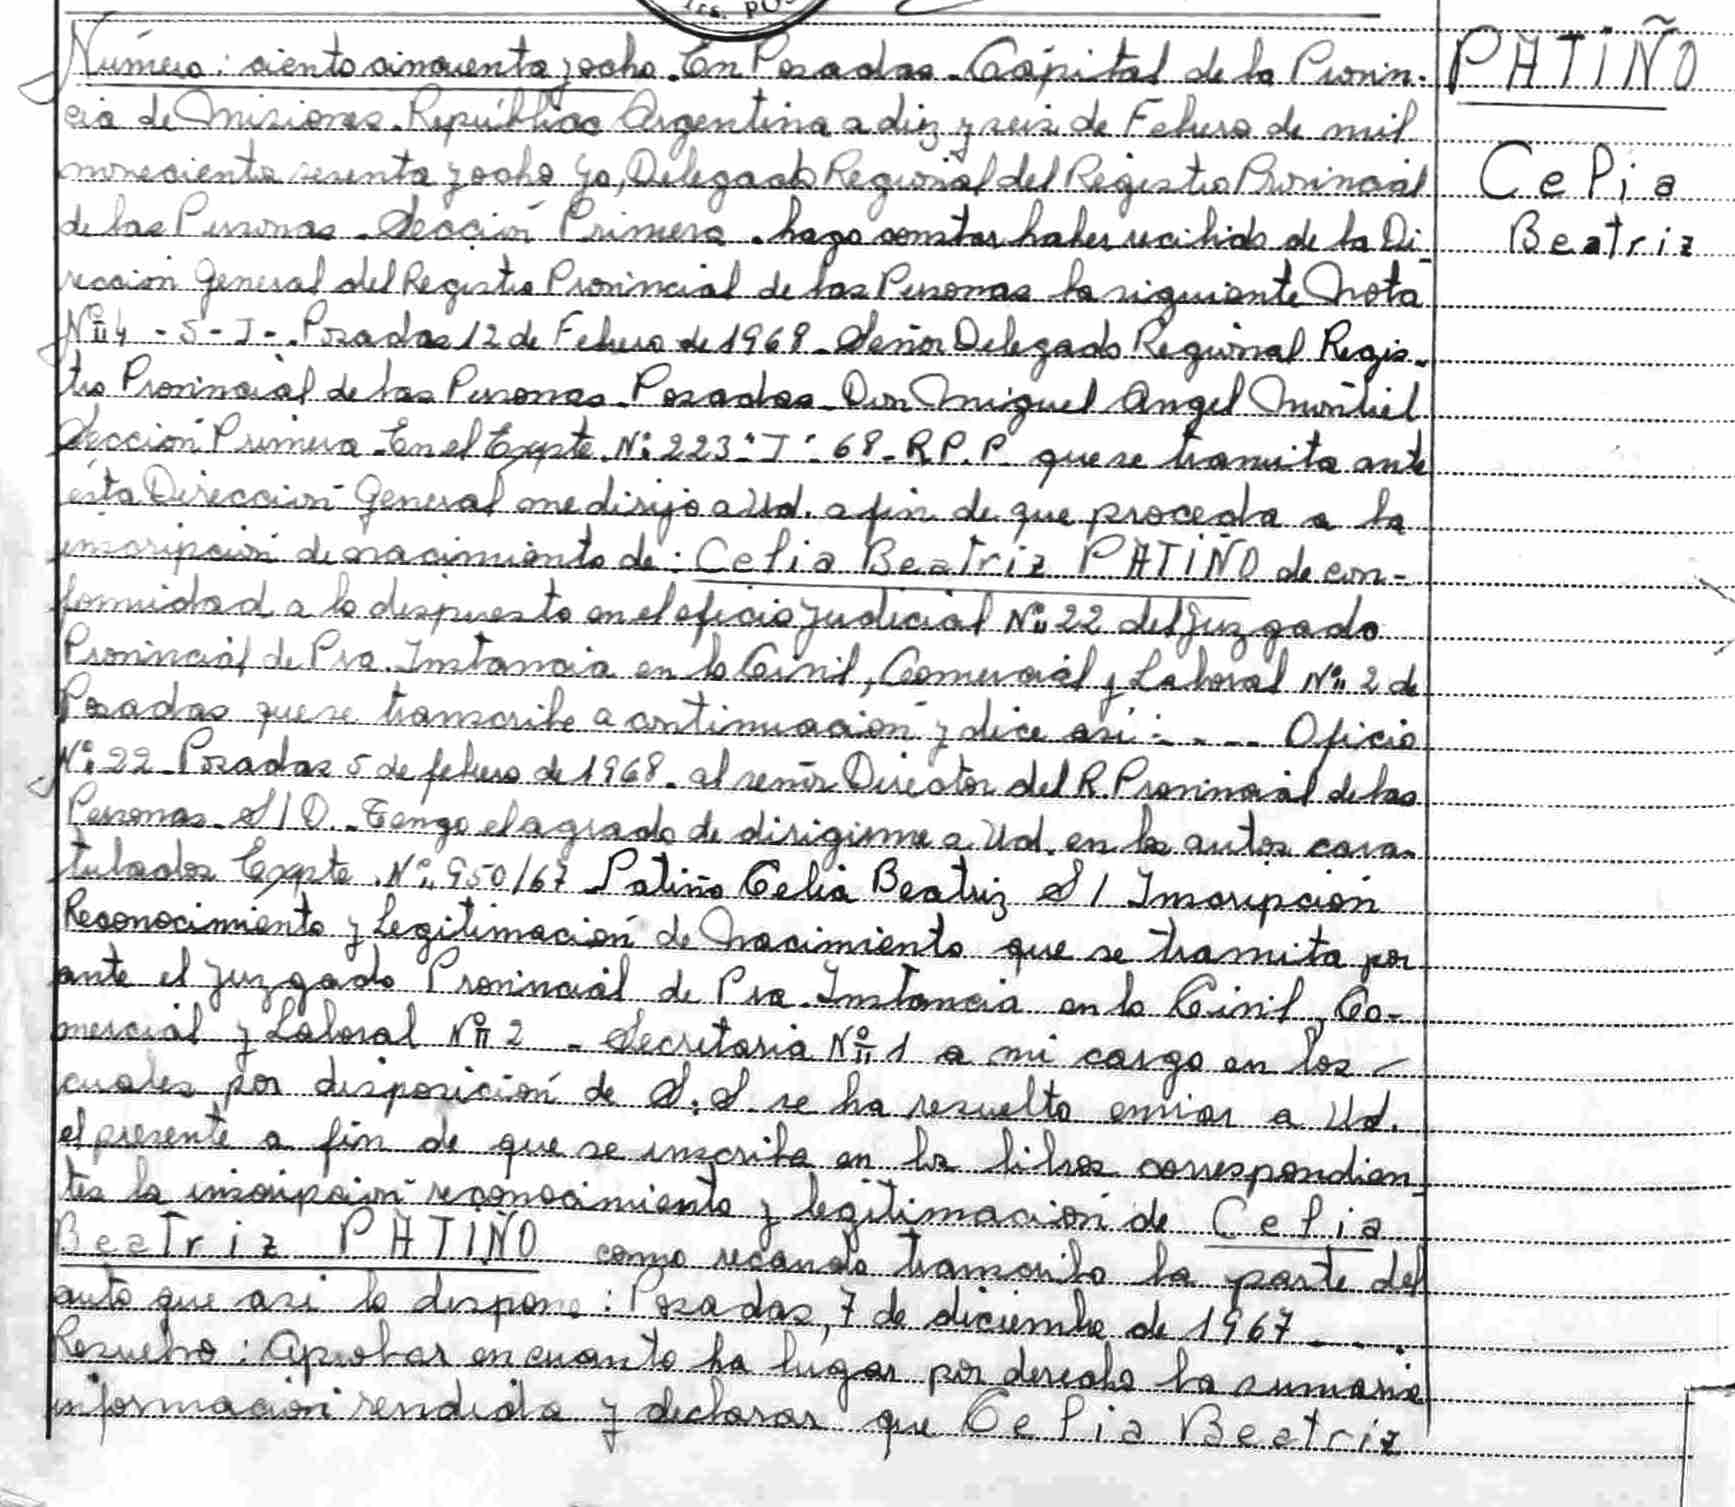 Número: ciento cincuenta y ocho. En Posadas. Capital de la Provin-
cia de Misiones. República Argentina a diez y seis de Febrero de mil
novecientos sesenta y ocho Yo, Delegado Regional del Registro Provincial
de las Personas. Sección Primera. hago constar haber recibido de la Di-
rección General del Registro Provincial de las Personas la siguiente Nota
Nº 4 - S - J -. Posadas 12 de Febrero de 1968. Señor Delegado Regional Regis-
tro Provincial de las Personas. Posadas. Don Miguel Angel Montiel
Sección Primera. En el Expte. Nº 223 "J" 68. R.P.P. que se tramita ante
ésta Dirección General me dirijo a Ud. a fin de que proceda a la
inscripción de nacimiento de: Celia Beatriz PATIÑO de con-
formidad a lo dispuesto en el oficio Judicial Nº 22 del Juzgado
Provincial de Pra. Instancia en lo Civil, Comercial y Laboral Nº 2 de
Posadas que se transcribe a continuación y dice así: - . - - Oficio
Nº 22. Posadas 5 de febrero de 1968. al señor Director del R. Provincial de las
Personas. S/D. Tengo el agrado de dirigirme a Ud. en los autos cara-
tulados Expte. Nº 950/67 Patiño Celia Beatriz S/ Inscripción
Reconocimiento y Legitimación de Nacimiento que se tramita por
ante el Juzgado Provincial de Pra. Instancia en lo Civil, Co-
mercial y Laboral Nº 2 - Secretaria Nº 1 a mi cargo en los -
cuales por disposición de S. S. se ha resuelto enviar a Ud.
el presente a fin de que se inscriba en los libros correspondien-
tes la inscripción reconocimiento y legitimación de Celia
Beatriz PATIÑO como recaudo transcribo la parte del
auto que asi lo dispone: Posadas, 7 de diciembre de 1967 - . . .
Resuelvo: Aprobar en cuanto ha lugar por derecho la sumaria
información rendida y declarar que Celia Beatriz
PATIÑO
Celia
Beatriz